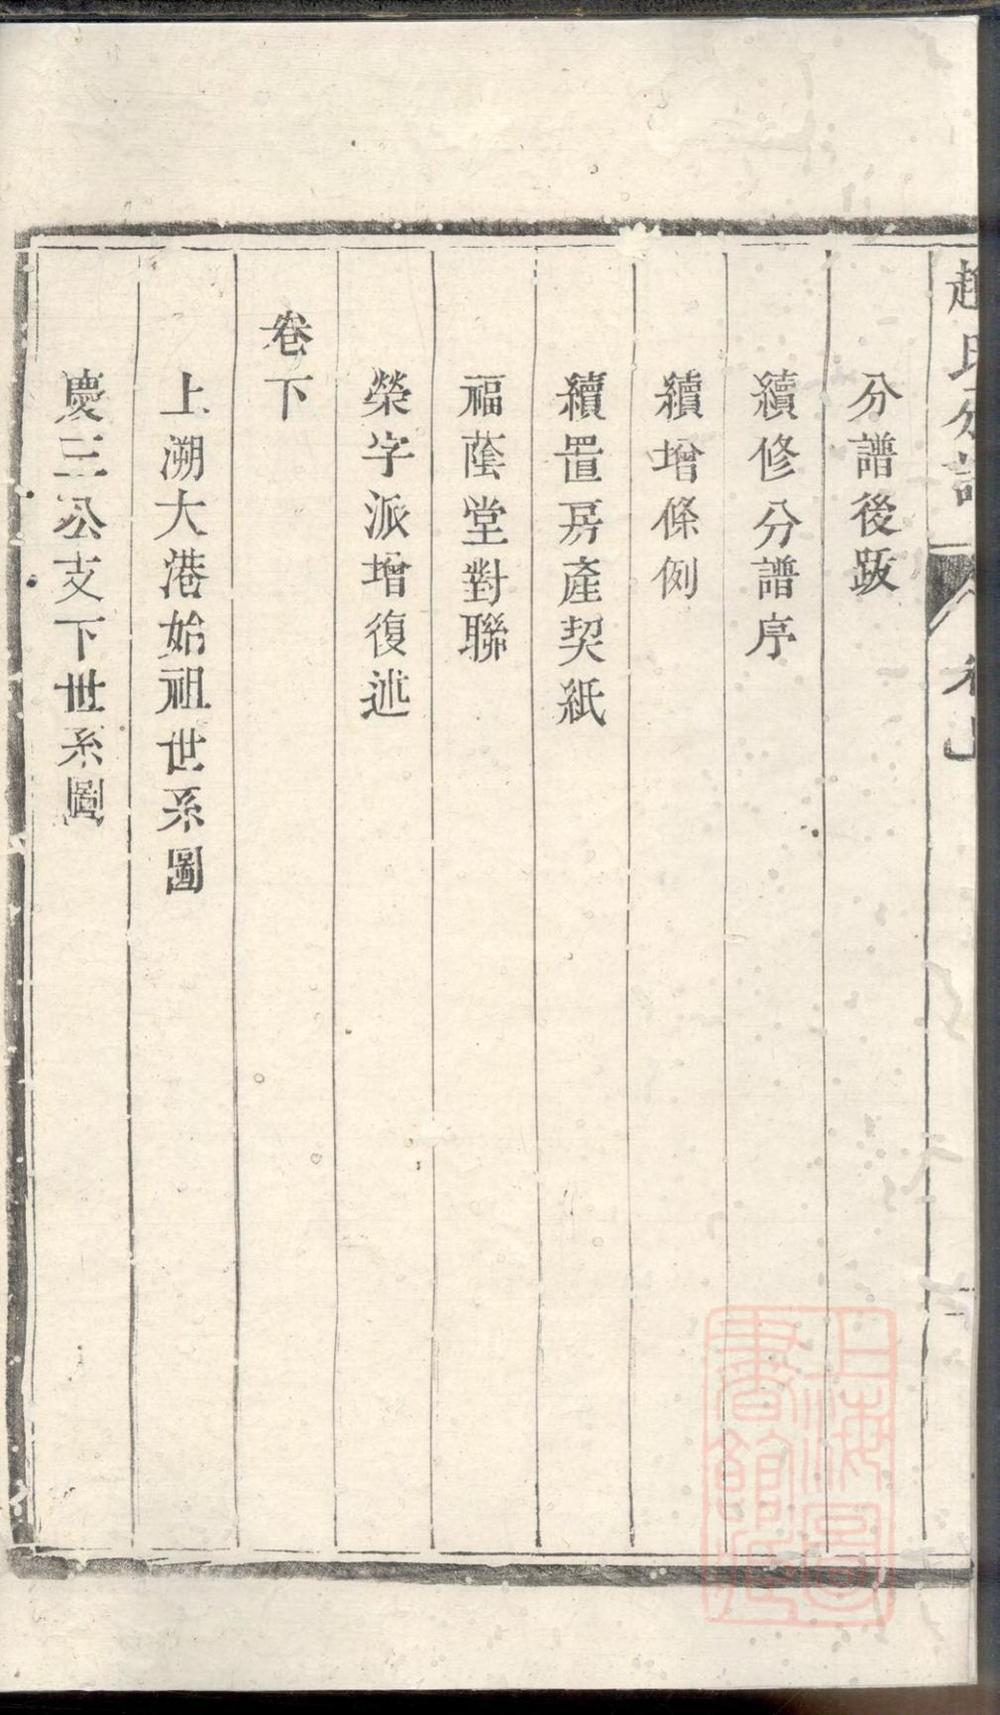 趙氏分譜 卷上
分譜後跋
續修分譜序
續增條例
續置房產契紙
福蔭堂對聯
榮字派增復述
卷下
上溯大港始祖世系圖
慶三公支下世系圖
上海圖書館藏